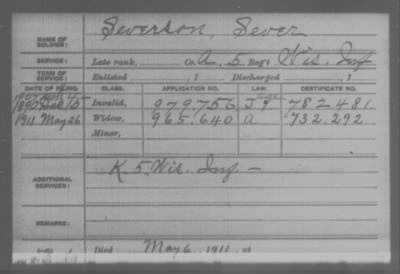 NAME OF SOLDIER: Severson, Sever
SERVICE: Late rank, Co. A, 5 Reg't Wis. Inf
TERM OF SERVICE: Enlisted , 1 Discharged , 1
DATE OF FILING. CLASS. APPLICATION NO. LAW. CERTIFICATE NO.
1907
1890 Dec 15 Invalid, 979.756 J 782.481
1911 May 26 Widow, 965.640 a 732.292
Minor,
ADDITIONAL SERVICES: K 5. Wis. Inf. —
REMARKS:
Died May 6, 1911, at